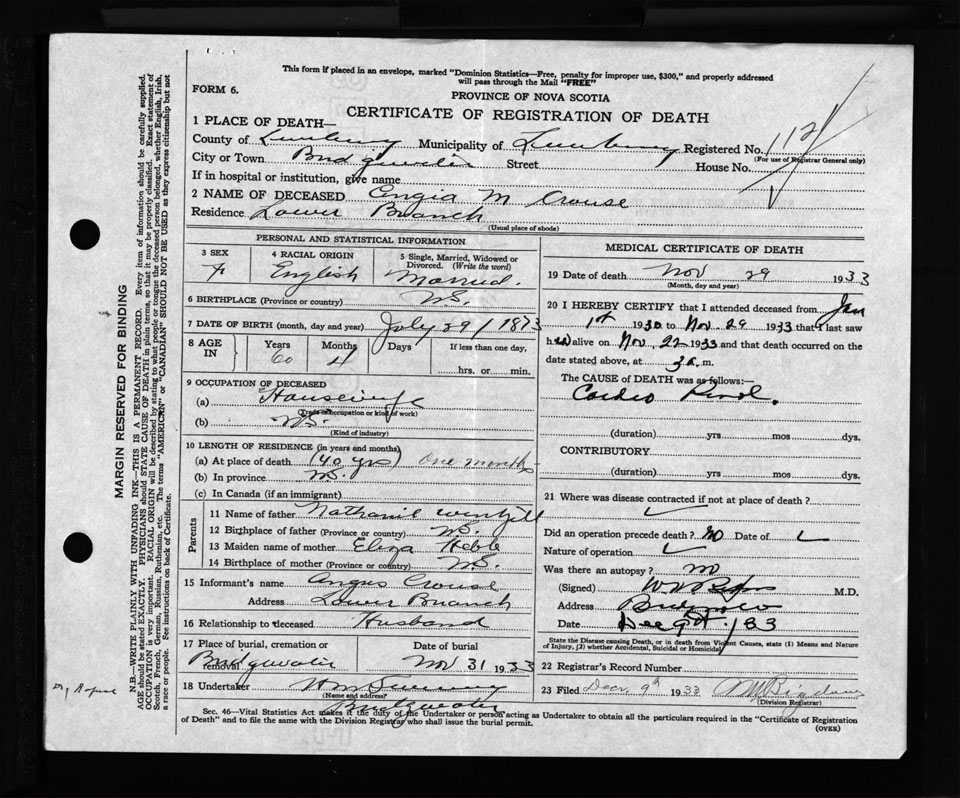 This form if placed in an envelope, marked "Dominion Statistics—Free, penalty for improper use, $300," and properly addressed
will pass through the Mail "FREE"
FORM 6.
PROVINCE OF NOVA SCOTIA
CERTIFICATE OF REGISTRATION OF DEATH
1 PLACE OF DEATH—
County of Lunenburg Municipality of Lunenburg Registered No. 112
(For use of Registrar General only)
City or Town Bridgewater Street House No.
If in hospital or institution, give name
2 NAME OF DECEASED Engia M Crouse
Residence Lower Branch
(Usual place of abode)
PERSONAL AND STATISTICAL INFORMATION
3 SEX F
4 RACIAL ORIGIN English
5 Single, Married, Widowed or Divorced. (Write the word) Married.
6 BIRTHPLACE (Province or country) N.S.
7 DATE OF BIRTH (month, day and year) July 29/1873
8 AGE IN Years 60 Months 4 Days If less than one day, hrs. or min.
9 OCCUPATION OF DECEASED
(a) Housewife
(Trade, occupation or kind of work)
(b) N.S.
(Kind of industry)
10 LENGTH OF RESIDENCE (in years and months)
(a) At place of death (40 yrs) one month
(b) In province N.S.
(c) In Canada (if an immigrant)
Parents
11 Name of father Nathanil Wentzell
12 Birthplace of father (Province or country) N.S.
13 Maiden name of mother Eliza Heble
14 Birthplace of mother (Province or country) N.S.
15 Informant's name Angus Crouse
Address Lower Branch
16 Relationship to deceased Husband
17 Place of burial, cremation or removal Bridgewater
Date of burial Nov 31 1933
18 Undertaker
(Name and address)
Bridgewater
MEDICAL CERTIFICATE OF DEATH
19 Date of death Nov 29 1933
(Month, day and year)
20 I HEREBY CERTIFY that I attended deceased from Jan
1st 1930 to Nov. 29 1933 that I last saw
h alive on Nov. 29 1933 and that death occurred on the
date stated above, at 3 a.m.
The CAUSE OF DEATH was as follows:—
Cardio Renal.
(duration) yrs mos dys.
CONTRIBUTORY
(duration) yrs mos dys.
21 Where was disease contracted if not at place of death?
Did an operation precede death? no Date of
Nature of operation
Was there an autopsy? no
(Signed) M.D.
Address
Date Dec 9th /33
State the Disease causing Death, or in death from Violent Causes, state (1) Means and Nature
of Injury, (2) whether Accidental, Suicidal or Homicidal
22 Registrar's Record Number
23 Filed Decr. 9th 1933
(Division Registrar)
Sec. 46—Vital Statistics Act makes it the duty of the Undertaker or person acting as Undertaker to obtain all the particulars required in the "Certificate of Registration
of Death" and to file the same with the Division Registrar who shall issue the burial permit.
(OVER)
MARGIN RESERVED FOR BINDING
N.B.—WRITE PLAINLY WITH UNFADING INK—THIS IS A PERMANENT RECORD. Every item of information should be carefully supplied.
AGE should be stated EXACTLY. PHYSICIANS should STATE CAUSE OF DEATH in plain terms, so that it may be properly classified. Exact statement of
OCCUPATION is very important. RACIAL ORIGIN will be described by stating to what people or tongue the deceased person belonged, whether English, Irish,
Scotch, French, German, Russian, Ruthenian, etc. The terms "AMERICAN" or "CANADIAN" SHOULD NOT BE USED as they express citizenship but not
a race or people. See instructions on back of Certificate.